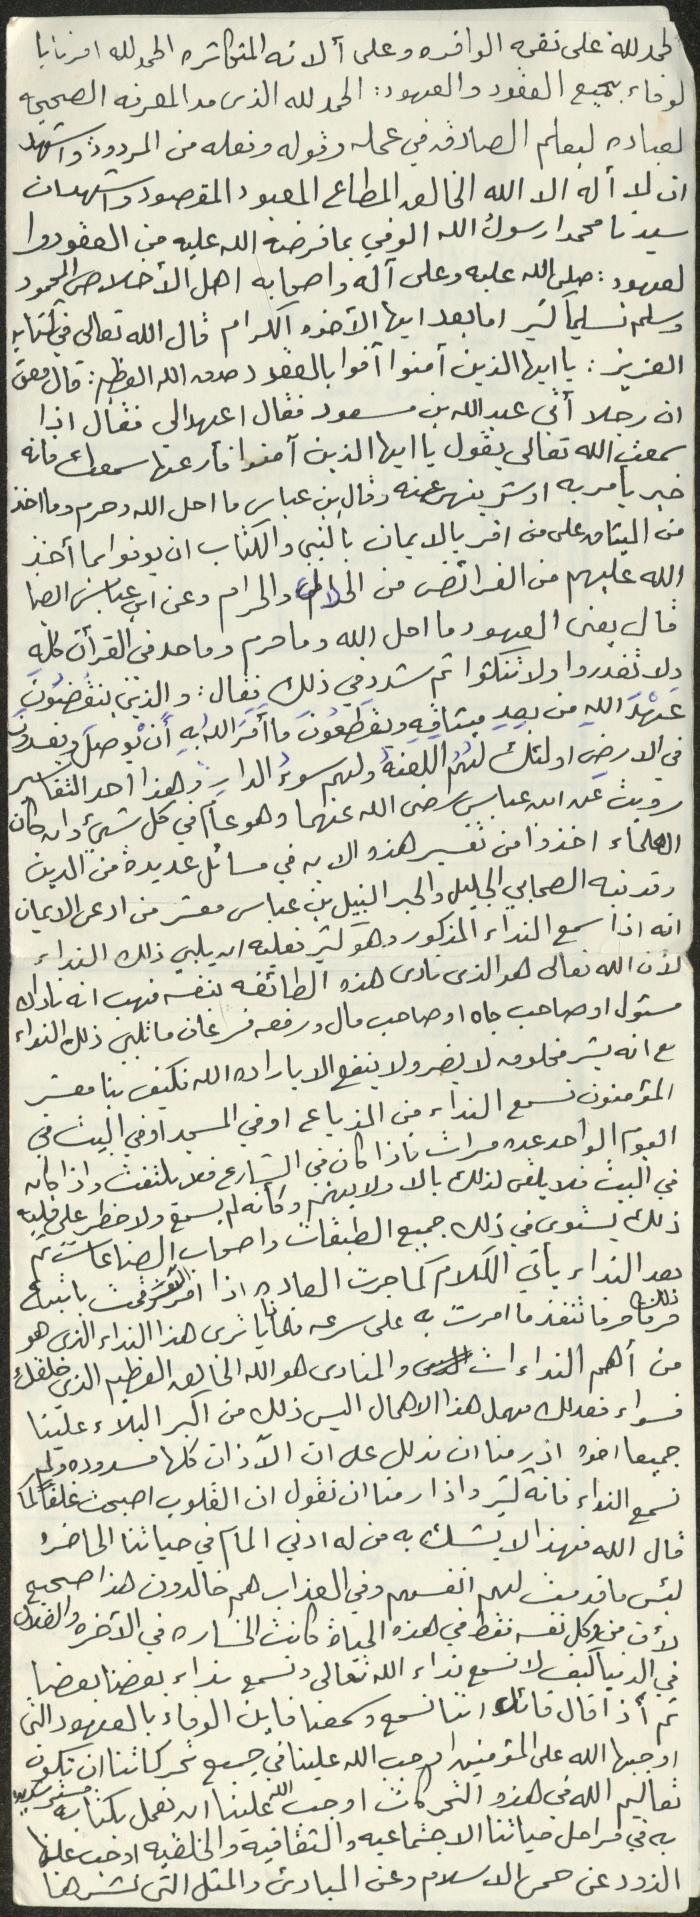 الحمد لله على نعمه الوافره وعلى ألائه المتكاثره الحمد لله امرنا با
لوفاء بجميع العقود والعهود: الحمد لله الذى مد المعرفه الصحيحه
لعباده ليعلم الصادق في عمله وقوله وفعله من المردود واشهد
ان لا أله الا الله الخالق المطاع المعبود المقصود واشهد ان
سيدنا محمدا رسول الله الوفي بما فرضه الله عليه من العقود وا
لعهود: صلى الله عليه وعلى آله واصحابه اهل الأخلاص المحمود
وسلم تسليمآ كثير اما بعد ايها الآخوه الكرام قال الله تعالى في كتابه
العزيز: يا ايها الذين آمنوا آفوا بالعقود صدق الله العظيم: قال
ان رجلا أتى عبد الله بن مسعود فقال اعهد الي فقال اذا
سمعت الله تعالى يقول يا ايها الذين آمنوا فأرعها سمعك فانه
خير يأمر به او شر ينهى عنه وقال بن عباس ما احل الله وحرم وما اخذ
من الميثاق على من اقر بالايمان بالنبي والكتاب ان يوفوا بما أخذ
الله عليهم من الفرائض من الحلال والحرام وعن ابن عباس ايضا
قال يعنى العهود ما احل الله وما حرم وما حد في القرآن كله
ولا تغدروا ولا تنكثوا ثم شدد في ذلك فقال: والذين ينقضون
عهد الله من بعد ميثاقه ويقطعون ما أمر الله به أن يوصل ويفسدون
في الارض اولئك لهم اللعنة ولهم سوء الدار وهذا احد التفاسير
رويت عن ابن عباس رضى الله عنهما وهو عام في كل شيئ وان كان
العلماء اخذوا من تفسير هذه الايه في مسائل عديدة من الدين
وقد نبه الصحابي الجليل والحبر النبيل بن عباس معشر من ادعى الايمان
انه اذا سمع النداء المذكور وهو كثير فعليه ان يلبي ذلك النداء
لأن الله تعالى هو الذى نادى هذه الطائفه لنفسه فهب انه ناداك
مسئول او صاحب جاه او صاحب مال ورفعه فسرعان ما تلبي ذلك النداء
مع انه بشر مخلوق لا يضر ولا ينفع الا باراده الله فكيف بنا معشر
المؤمنون نسمع النداء من المذياع او في المسجد او في البيت في
اليوم الواحد عده مرات فاذا كان في الشارع فلا يلتفت واذا كان
في البيت فلا يلقى لذلك بالا ولا يهتم وكأنه لم يسمع ولا خطر على قلبه
ذلك يستوى في ذلك جميع الطبقات واصحاب الصناعات ثم
بعد النداء يأتي الكلام كما جرت العاده اذا امر البشر قمت باتباع
ذلك حرفا حرفا تنفذ ما امرت به على سرعه فلماذا يا ترى هذا النداء الذى هو
من أهم النداءات والمنادى هو الله الخالق العظيم الذى خلقك
فسواء فعدلك مهمل هذا الاهمال اليس ذلك من اكبر البلاء علينا
جميعا اخوه اذ رمنا ان ندلل على ان الآذان كلها مسدوده ولم
نسمع النداء فانه كثير واذا رمنا ان نقول ان القلوب اصبحت غلفآ كما
قال الله فهذا لا يشك به من له ادنى المام في حياتنا الحاضره
لبئس ما قدمت لهم انفسهم وفي العذاب هم خالدون هذا صحيح
لأن من وكل نفسه فقط في هذه الحياة كانت الخساره في الآخره والضلال
في الدنيا كيف لا نسمع نداء الله تعالى ونسمع نداء بعضنا بعضا
ثم أذا قال قائل اننا نسمع وسمعنا فاين الوفاء بالعهود التى
اوجبها الله على المؤمنين اوجب الله علينا في جميع تحركاتنا ان تكون
تعاليم الله في هذه التحركات اوجب الله علينا ان نعمل بكتابه مسترشدين
به في مراحل حياتنا الاجتماعيه والثقافيه والخلقيه اوجب علينا
الذود عن حمى الاسلام وعن المبادئ والمثل التى نشرها